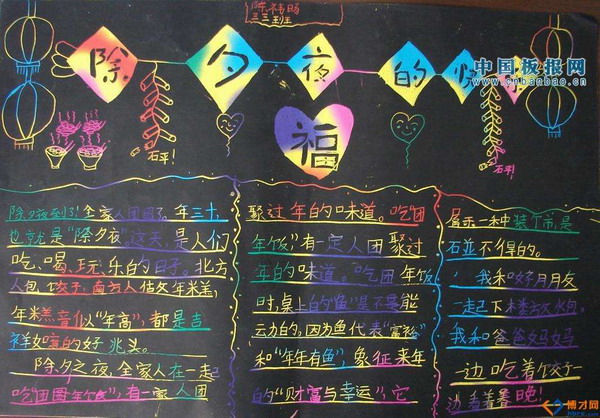 三三班
除夕夜的
中国板报网
www.cnbanbao.cn
福
石平!
石平!
除夕夜到了!全家人团圆了,年三十
也就是"除夕夜"这天,是人们
吃、喝、玩、乐的日子。北方
人包饺子,南方人做年米糕,
年米糕音似"年高",都是吉
祥如意的好兆头。
除夕之夜,全家人在一起
吃"团圆年饭",有一家人团
聚过年的味道。吃"团
年饭"有一家人团聚过
年的味道。吃团年饭
时,桌上的"鱼"是不能
云力的,因为鱼代表"富裕"
和"年年有鱼",象征来年
的"财富与幸运",它
属示一种装
我和好朋友
一起下楼放火包。
我和爸爸妈妈
一边吃着饺子一
边看着春晚!
博才网